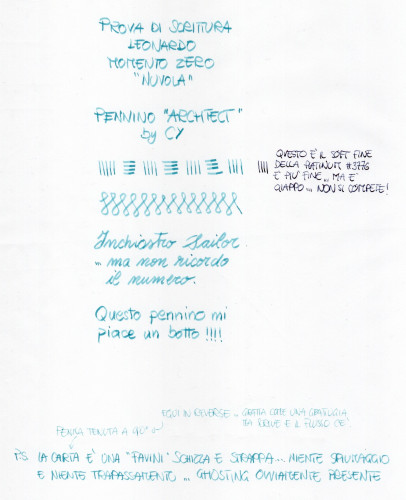 PROVA DI SCRITTURA
LEONARDO
MOMENTO ZERO
"NUVOLA"
PENNINO "ARCHITECT"
by CY
QUESTO È IL SOFT FINE
DELLA PLATINUM #3776
E PIU' FINE.. MA È
GIAPPO... NON SI COMPETE!
Inchiostro Sailor
... ma non ricordo
il numero.
Questo pennino mi
piace un botto !!!!
EQUI IN REVERSE .. GRATTA COME UNA GRATTUGIA
MA SCRIVE E IL FLUSSO C'E'
PENNA TENUTA A 90°
P.S. LA CARTA È UNA "FAVINI" SCHIZZA E STRAPPA... NIENTE SPIUMAGGIO
E NIENTE TRAPASSAMENTO ... GHOSTING OVVIAMENTE PRESENTE